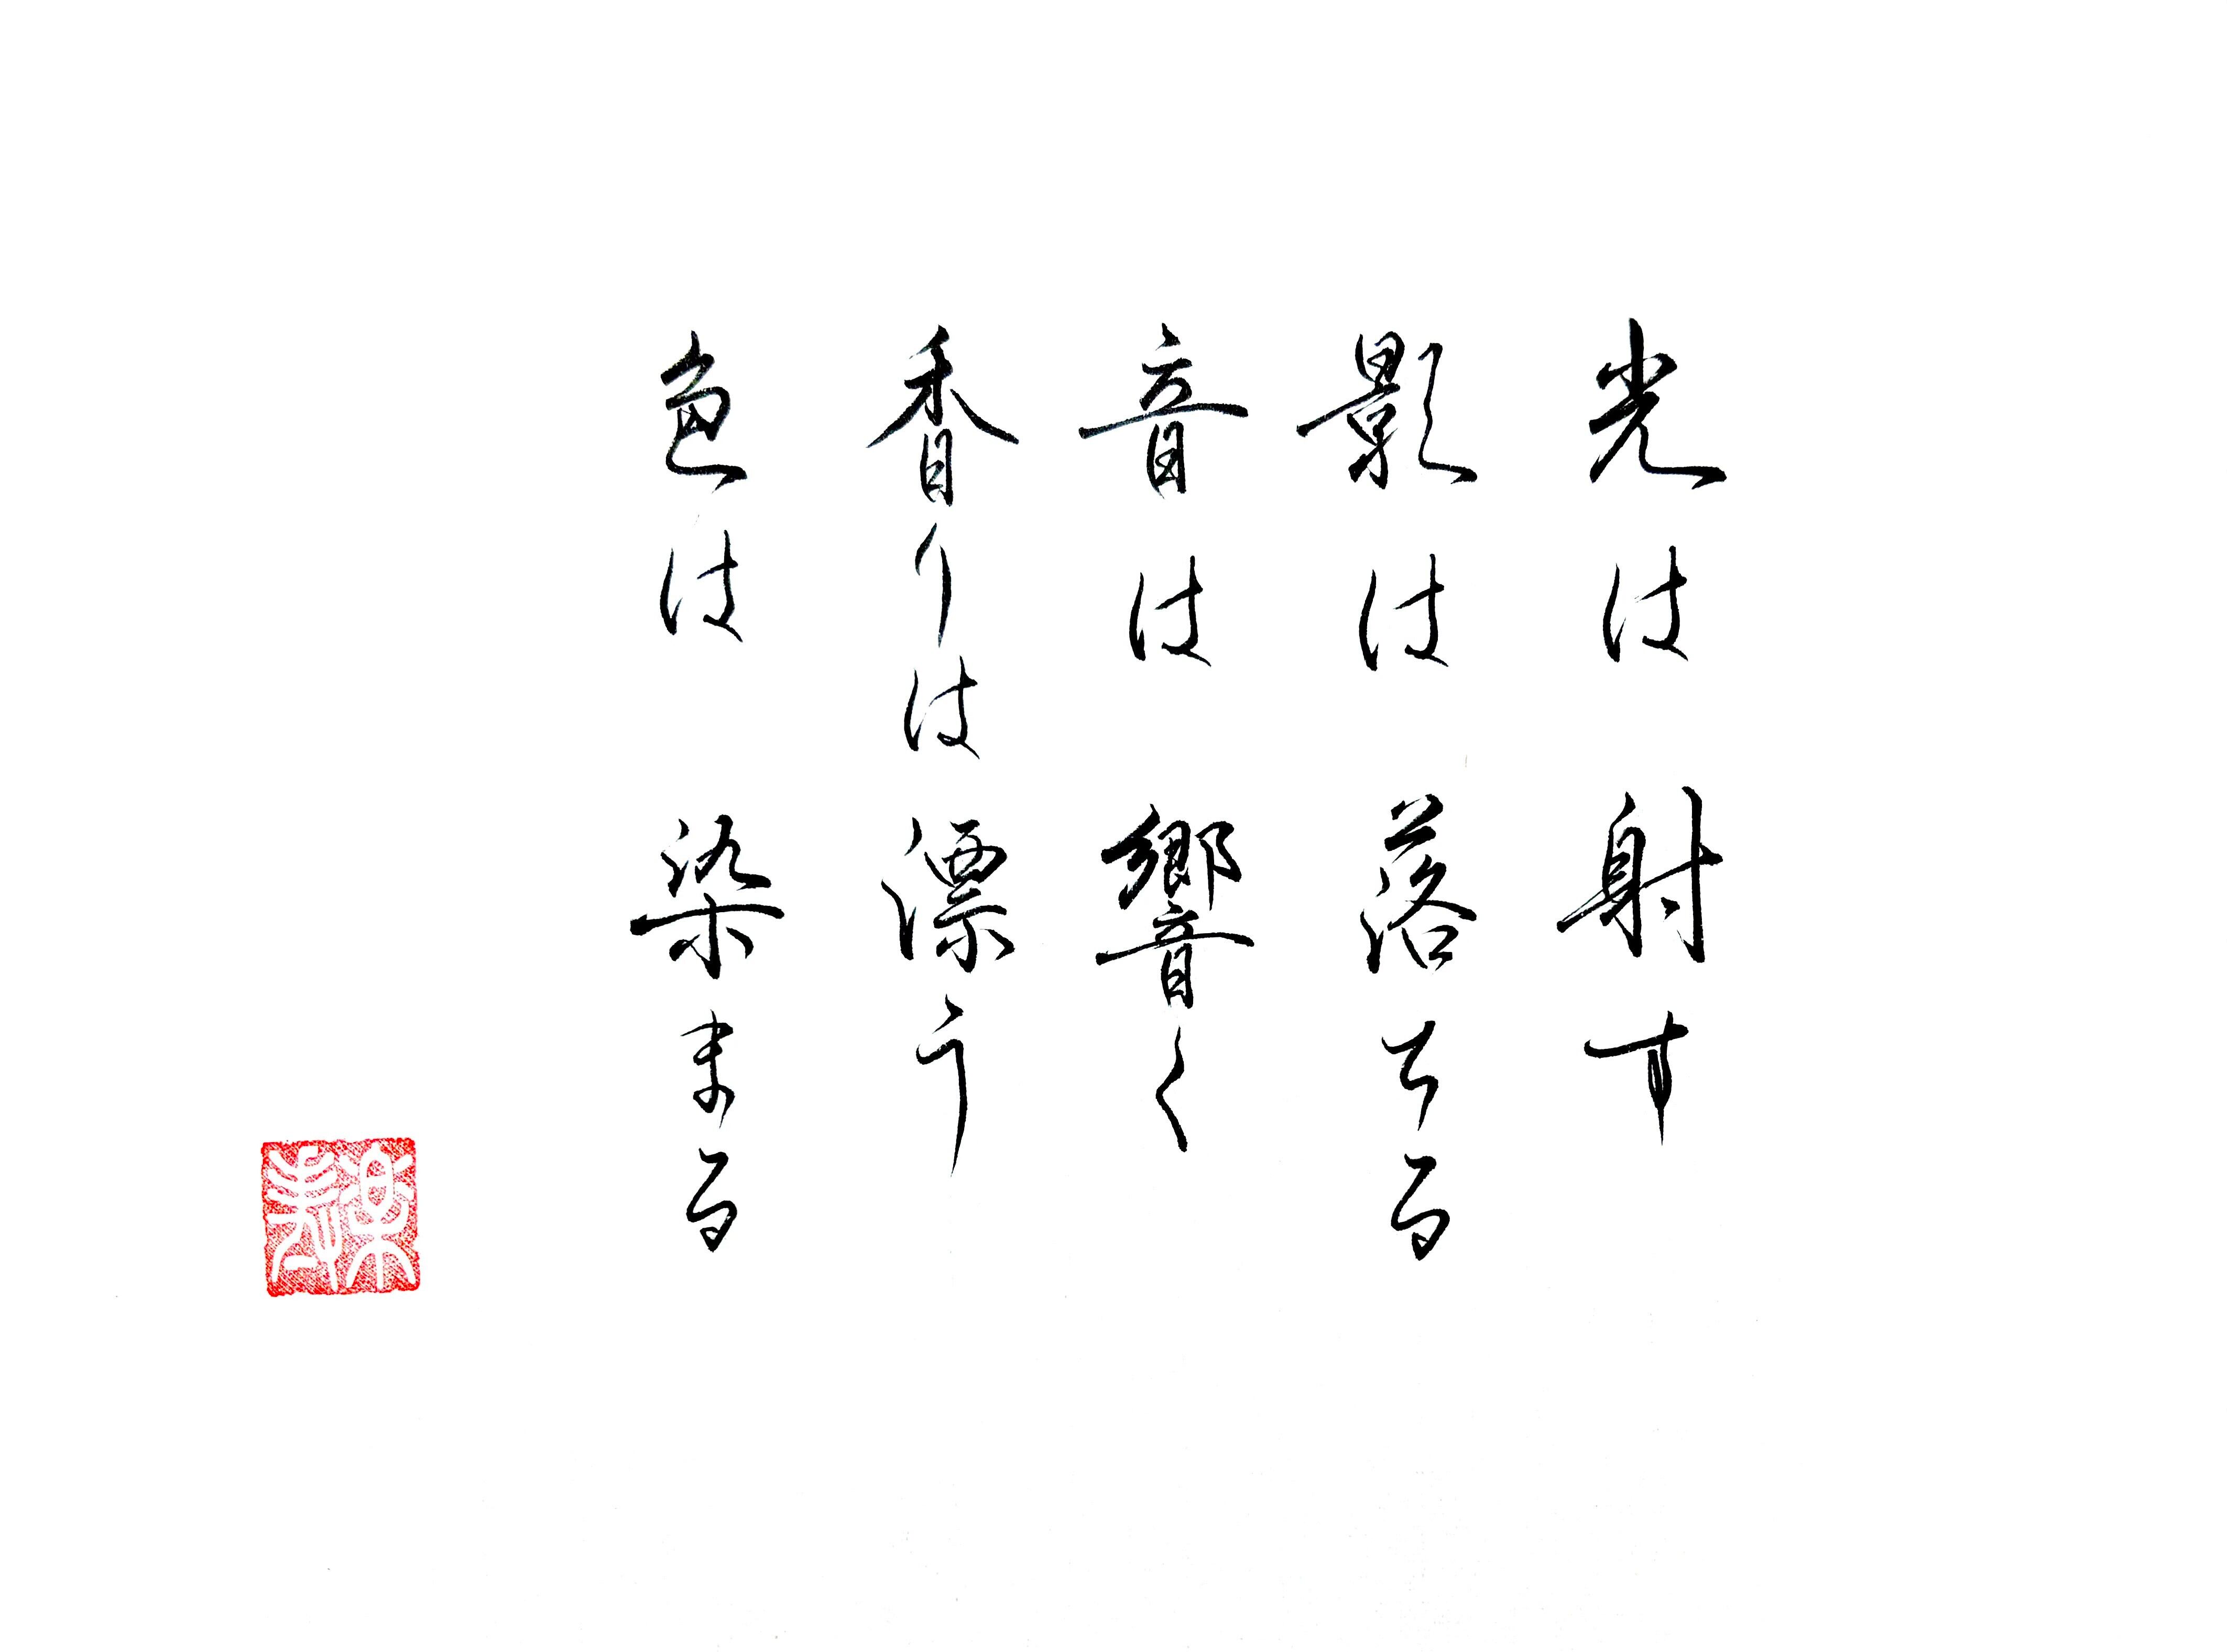 光は 射す
影は 落ちる
音は 響く
香りは 漂う
色は 染まる